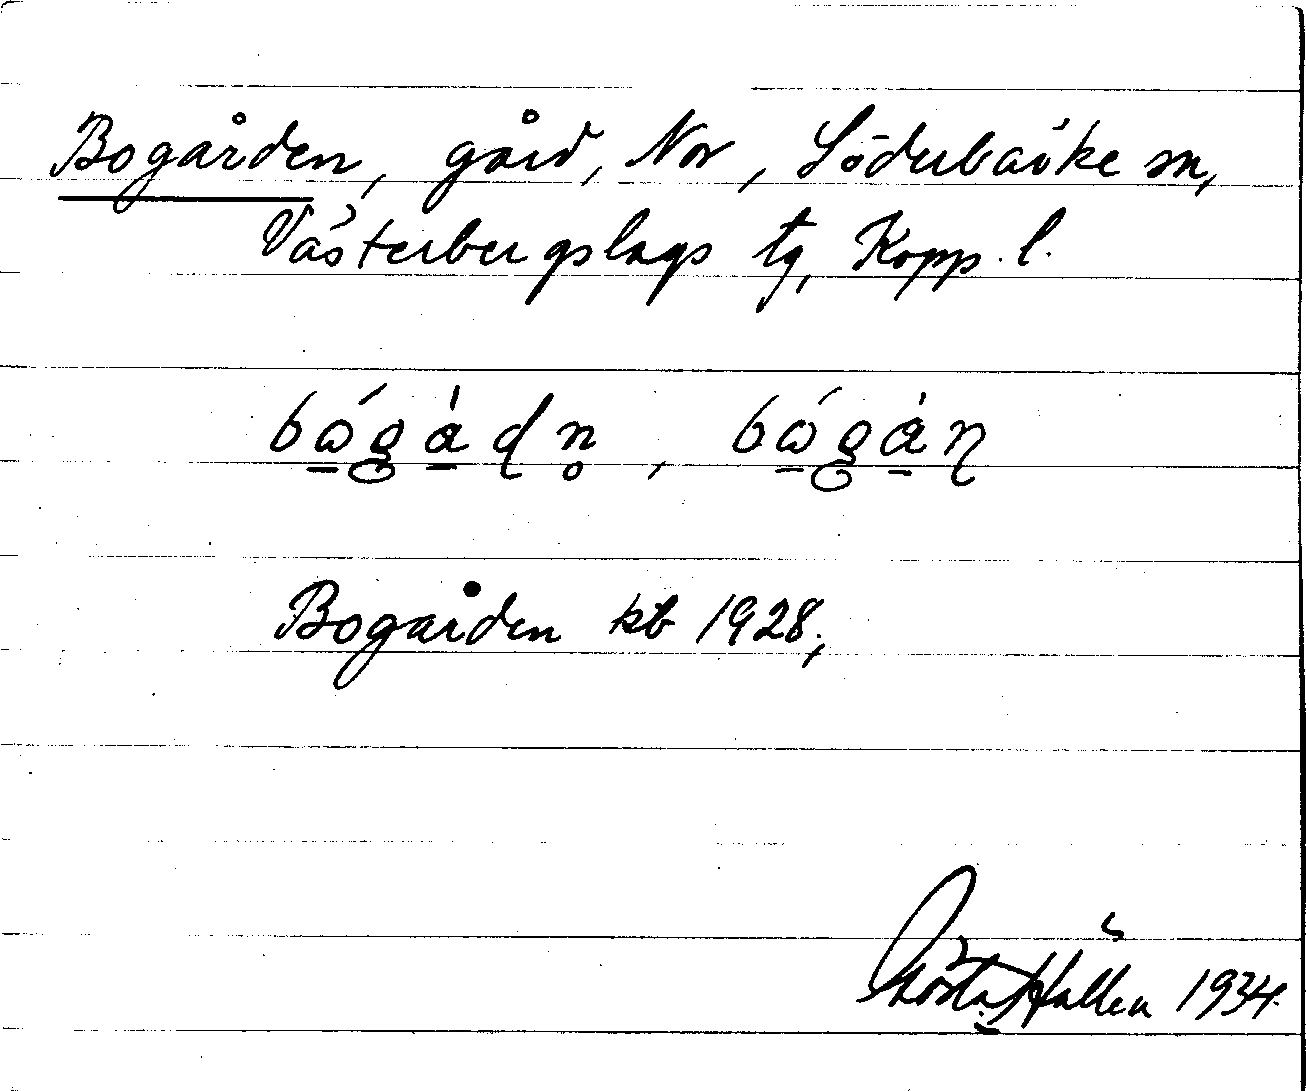 Bogården, gård, Nor, Söderbärke sn,
Västerbergslags tg, Kopp. l.
bɷ́gàɖn̥, bɷ́gàɳ
Bogården kb 1928;
Gösta Hallén 1934.